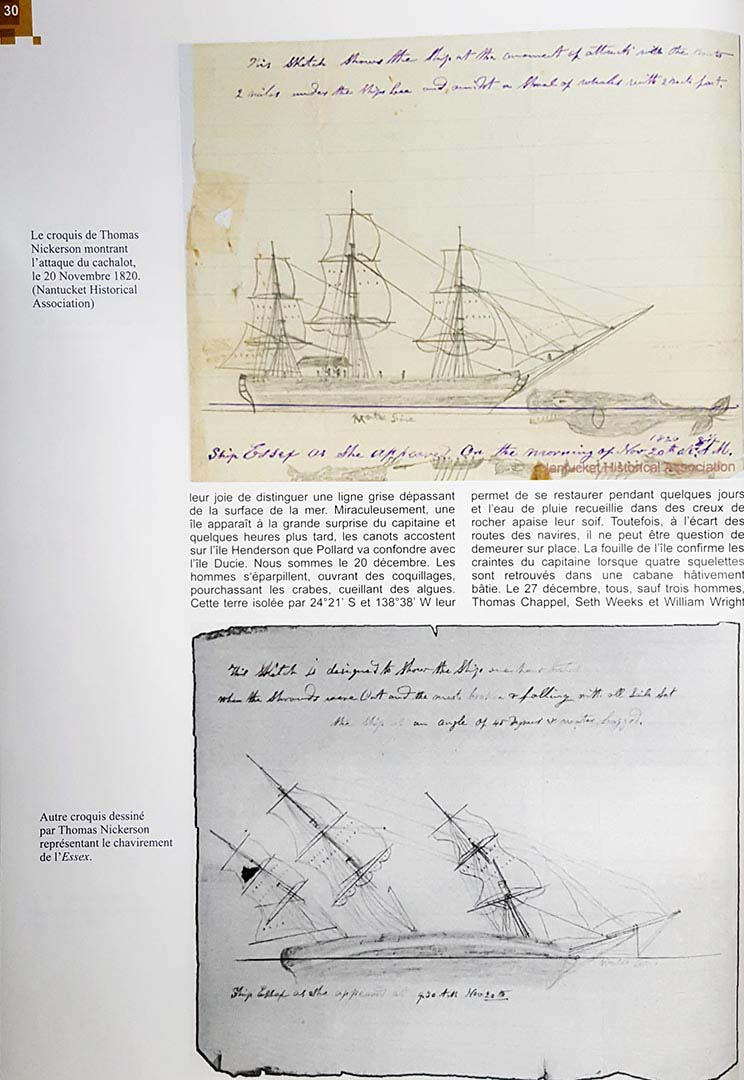 30
This Sketch shows the Ship at the moment of attack with the Boats
2 miles under the Ships Lee and amidst a Shoal of whales with 2 boats fast.
Le croquis de Thomas
Nickerson montrant
l'attaque du cachalot,
le 20 Novembre 1820.
(Nantucket Historical
Association)
Water Line
Ship Essex as she appeared On the morning of Nov 20th at A.M.
1820
Nantucket Historical Association
leur joie de distinguer une ligne grise dépassant
de la surface de la mer. Miraculeusement, une
île apparaît à la grande surprise du capitaine et
quelques heures plus tard, les canots accostent
sur l'île Henderson que Pollard va confondre avec
l'île Ducie. Nous sommes le 20 décembre. Les
hommes s'éparpillent, ouvrant des coquillages,
pourchassant les crabes, cueillant des algues.
Cette terre isolée par 24°21' S et 138°38' W leur
permet de se restaurer pendant quelques jours
et l'eau de pluie recueillie dans des creux de
rocher apaise leur soif. Toutefois, à l'écart des
routes des navires, il ne peut être question de
demeurer sur place. La fouille de l'île confirme les
craintes du capitaine lorsque quatre squelettes
sont retrouvés dans une cabane hâtivement
bâtie. Le 27 décembre, tous, sauf trois hommes,
Thomas Chappel, Seth Weeks et William Wright
This Sketch is designed to show the Ship
when the Shrouds were Cut and the masts & falling with all Sails Set
the Ship at an angle of 45 degrees & water logged.
Autre croquis dessiné
par Thomas Nickerson
représentant le chavirement
de l'Essex.
Ship Essex as she appeared at 9.30 AM Nov 20th